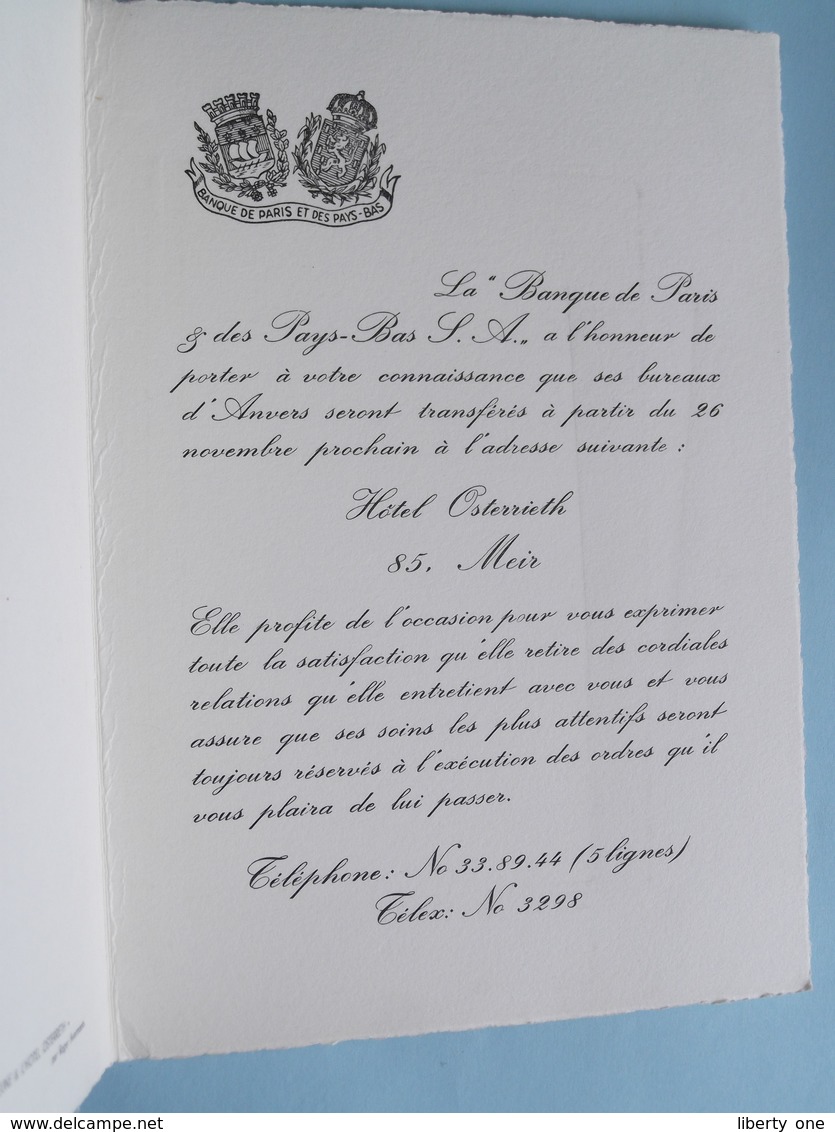 BANQUE DE PARIS ET DES PAYS-BAS
La "Banque de Paris
& des Pays-Bas S. A.„ a l'honneur de
porter à votre connaissance que ses bureaux
d'Anvers seront transférés à partir du 26
novembre prochain à l'adresse suivante :
Hôtel Osterrieth
85, Meir
Elle profite de l'occasion pour vous exprimer
toute la satisfaction qu'elle retire des cordiales
relations qu'elle entretient avec vous et vous
assure que ses soins les plus attentifs seront
toujours réservés à l'exécution des ordres qu'il
vous plaira de lui passer.
Téléphone: No 33.89.44 (5 lignes)
Télex: No 3298
www.delcampe.net
liberty one